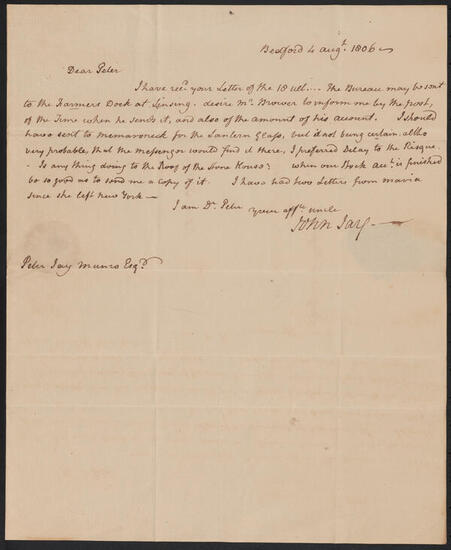 Bedford 4 augt. 1806
Dear Peter
I have recd. your Letter of the 18 ult. ... The Bureau may be sent
to the Farmers Dock at Sinsing. desire Mr. Brower to inform me by the post,
of the Time when he sends it, and also of the amount of his account. I should
have sent to Memaroneck for the Lantern Glass, but it not being certain altho
very probable, that the messenger would find it there, I preferred Delay to the Risque.
- Is any thing doing to the Roof of the Stone House? when our Dock acct. is finished
be so good as to send me a copy of it. I have had two Letters from maria
since she left new York —
I am Dr. Peter your affte. uncle
John Jay —
Peter Jay Munro Esqr.